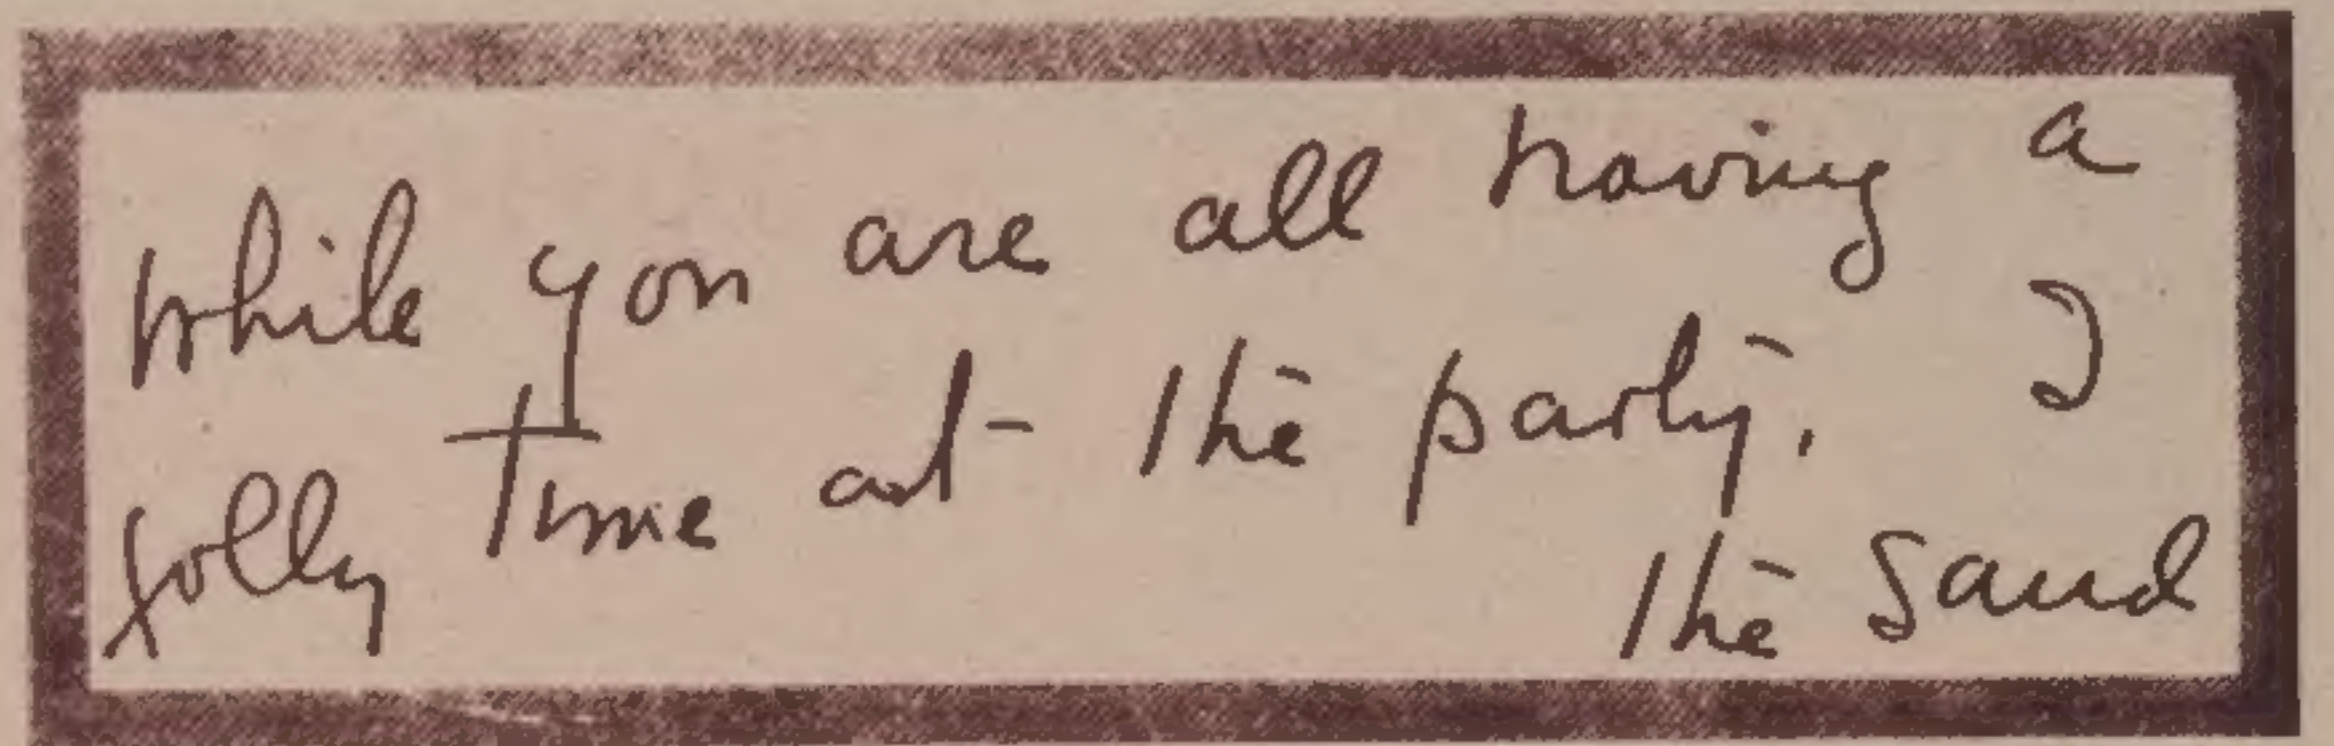 While you are all having a
jolly time at the party. I
the sand